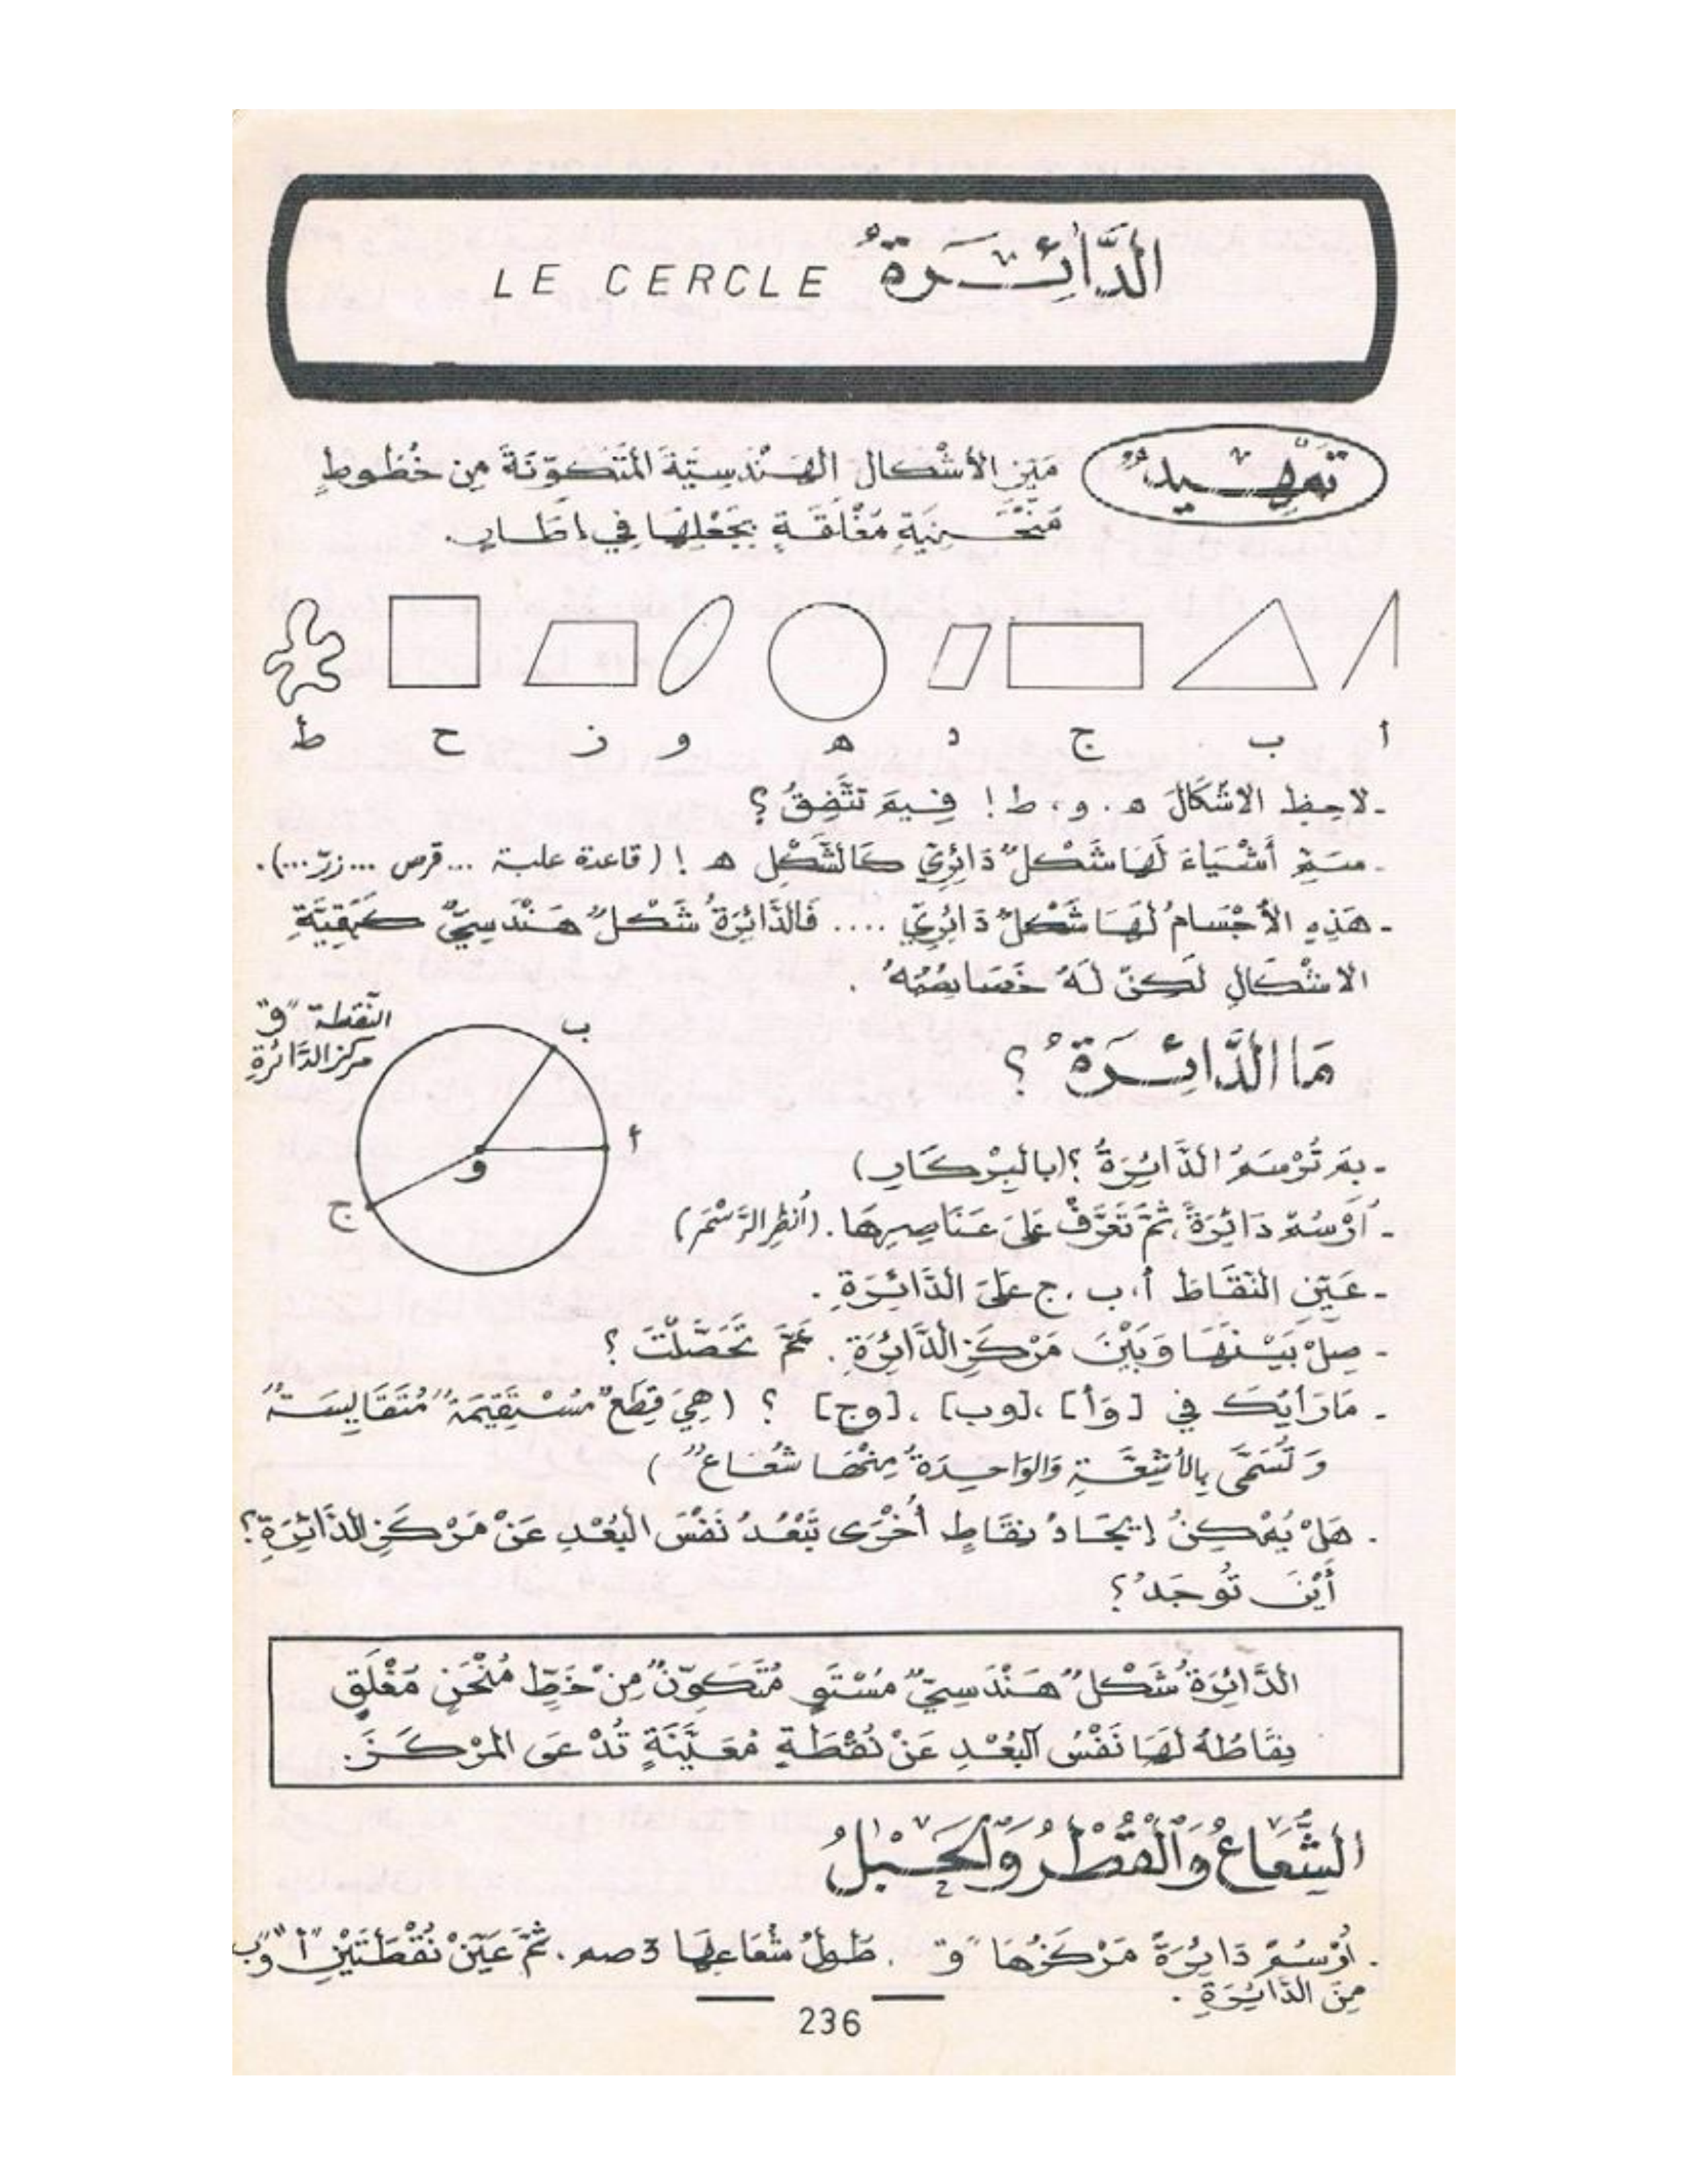 الدَّائِرَةُ LE CERCLE
تَمْهِيدٌ
مَيِّزِ الأَشْكَالَ الهَنْدَسِيَّةَ المُتَكَوِّنَةَ مِن خُطُوطٍ
مُنْحَنِيَةٍ مُغْلَقَةٍ بِجَعْلِهَا فِي إطَارٍ.
أ ب ج د ه و ز ح ط
- لاحِظِ الاشْكَالَ ه . و ، ط ! فِيمَ تَتَّفِقُ ؟
- سَمِّ أَشْيَاءَ لَهَا شَكْلٌ دَائِرِيّ كَالشَّكْلِ ه ! ( قاعدة علبة ... قرص ... زرّ ...).
- هَذِهِ الأَجْسَامُ لَهَا شَكْلٌ دَائِرِيّ .... فَالدَّائِرَةُ شَكْلٌ هَنْدَسِيٌّ كَبَقِيَّةِ
الاشْكَالِ لَكِنْ لَهُ خَصَائِصُهُ .
النّقطة "و"
مركز الدَّائرةِ
ب
أ
و
ج
مَا الدَّائِرَةُ ؟
- بِمَ تُرْسَمُ الدَّائِرَةُ ؟ (بالبِرْكَارِ)
- اُرْسُمْ دَائِرَةً ، ثُمَّ تَعَرَّفْ عَلَى عَنَاصِرِهَا . (اُنظُرِ الرَّسْمَ)
- عَيِّنِ النّقَاطَ أ ، ب ، ج عَلَى الدَّائِرَةِ .
- صِلْ بَيْنَهَا وَبَيْنَ مَرْكَزِ الدَّائِرَةِ . عَمَّ تَحَصَّلْتَ ؟
- مَا رَأْيُكَ فِي [وَأ] ، [وب] ، [وج] ؟ ( هِيَ قِطَعٌ مُسْتَقِيمَةٌ مُتَقَايِسَةٌ
وَ تُسَمَّى بِالأَشِعَّةِ وَالوَاحِدَةُ مِنْهَا شُعَاعٌ )
. هَلْ يُمْكِنُ إيجَادُ نِقَاطٍ أُخْرَى تَبْعُدُ نَفْسَ البُعْدِ عَنْ مَرْكَزِ الدَّائِرَةِ ؟
أَيْنَ تُوجَدُ ؟
الدَّائِرَةُ شَكْلٌ هَنْدَسِيٌّ مُسْتَوٍ مُتَكَوِّنٌ مِنْ خَطٍّ مُنْحَنٍ مُغْلَقٍ
نِقَاطُهُ لَهَا نَفْسُ البُعْدِ عَنْ نُقْطَةٍ مُعَيَّنَةٍ تُدْعَى المَرْكَزَ.
الشُّعَاعُ وَالْقُطْرُ وَالْحَبْلُ
. اُرْسُمْ دَائِرَةً مَرْكَزُهَا "و" . طُولُ شُعَاعِهَا 3 صم . ثُمَّ عَيِّنْ نُقْطَتَيْنِ "أ" وَ"ب"
مِنَ الدَّائِرَةِ .
236